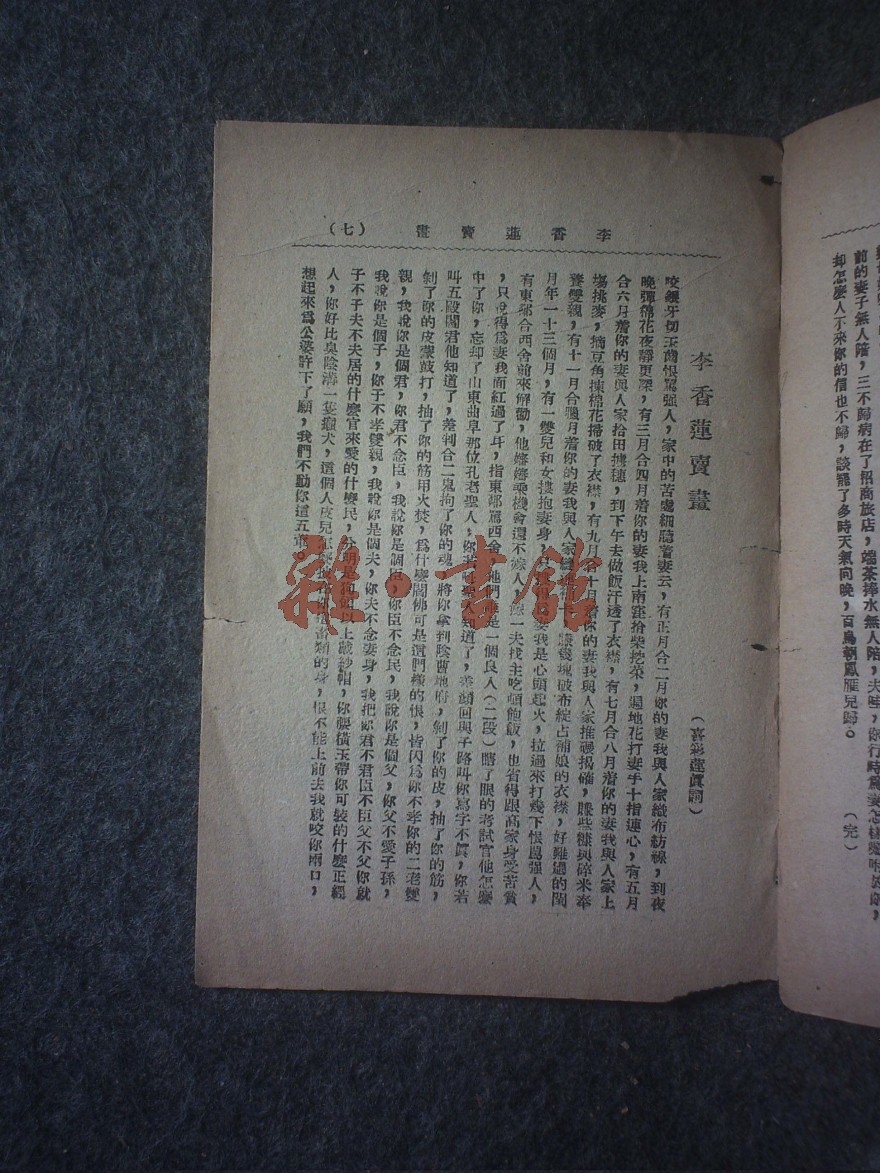 李香蓮賣畫 （七）
李香蓮賣畫
（喜彩蓮眞詞）
咬銀牙切玉齒恨罵强人，家中的苦處細聽着妻云，有正月合二月你的妻我與人家織布紡線，到夜
晚彈棉花夜靜更深，有三月合四月着你的妻我上南窪拾柴挖菜，遍地花打妻手十指連心，有五月
合六月着你的妻與人家拾田擄穗，到下午去做飯汗透了衣襟，有七月合八月着你的妻我與人家上
塲挑麥，摘豆角揀棉花掃破了衣襟，有九月合十月着你的妻我與人家推碾搗磨，賺些糠與碎米奉
養雙親，有十一月合臘月着你的妻我與人家 賺幾塊破布綻占補娘的衣襟，好難過的閏
月年一十三個月，有一雙兒和女摟抱妻身， 妻我是心頭起火，拉過來打幾下恨罵强人，
有東鄰合西舍前來解勸，他嬸嬸乘機會還不嫁人， 一夫找主吃頓飽飯，也省得跟高家身受苦貧
，只說得爲妻我面紅過了耳，指東鄰罵西舍 他們 是一個良人（二段）瞎了眼的考試官他怎麼
中了你，忘却了山東曲阜那位孔老聖人，你若 聖人知道了， 顏回與子路叫你寫字不眞，你若
叫五殿閻君他知道了，差判合二鬼拘了你的魂，將你拿到陰曹地府，剝了你的皮，抽了你的筋，
剝了你的皮蒙鼓打，抽了你的筋用火焚，爲什麼閻佛可是這們樣的恨，皆因爲你不孝你的二老雙
親，我說你是個君，你君不念臣，我說你是個臣，你臣不念民，我說你是個父，你父不愛子孫，
我說你是個子，你子不孝雙親，我說你是個夫，你夫不念妻身，我把你君不君臣不臣父不父你就
子不子夫不夫居的什麼官來愛的什麼民，分明是狗 以上戴紗帽，你襲橫玉帶你可裝的什麼正經
人，你好比臭陰溝一隻癩犬，這個人皮兒怎麼披在你這畜類的身，恨不能上前去我就咬你兩口，
想起來爲公婆許下了願，我們不動你這五葷。
前的妻子無人陪，三不歸病在了招商旅店，端茶捧水無人陪，夫哇，你行時爲妻怎樣囑咐於你，
却怎麼人不來你的信也不歸，談罷了多時天氣向晚，百鳥朝鳳雁兒歸。 （完）
雜·書館